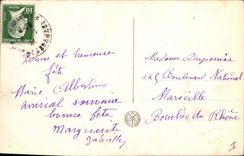 Bonne et heureuse
fête
Marie Albertine
amical souvenir
bonne fête
Marguerite
Gabrielle
Madame
Boulevard National
Marseille
Bouches du Rhône